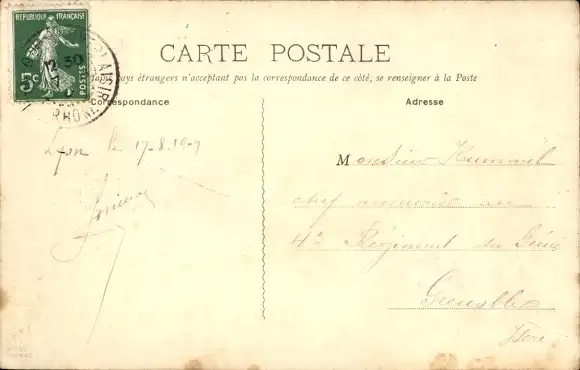 REPUBLIQUE FRANÇAISE
5c
POSTES
12
30
RHONE
CARTE POSTALE
pays étrangers n'acceptant pas la correspondance de ce côté, se renseigner à la Poste
Correspondance
Adresse
Lyon le 17-8.19-9
Monsieur Kummel
chef au
4e Régiment du Génie
Grenoble
Isère